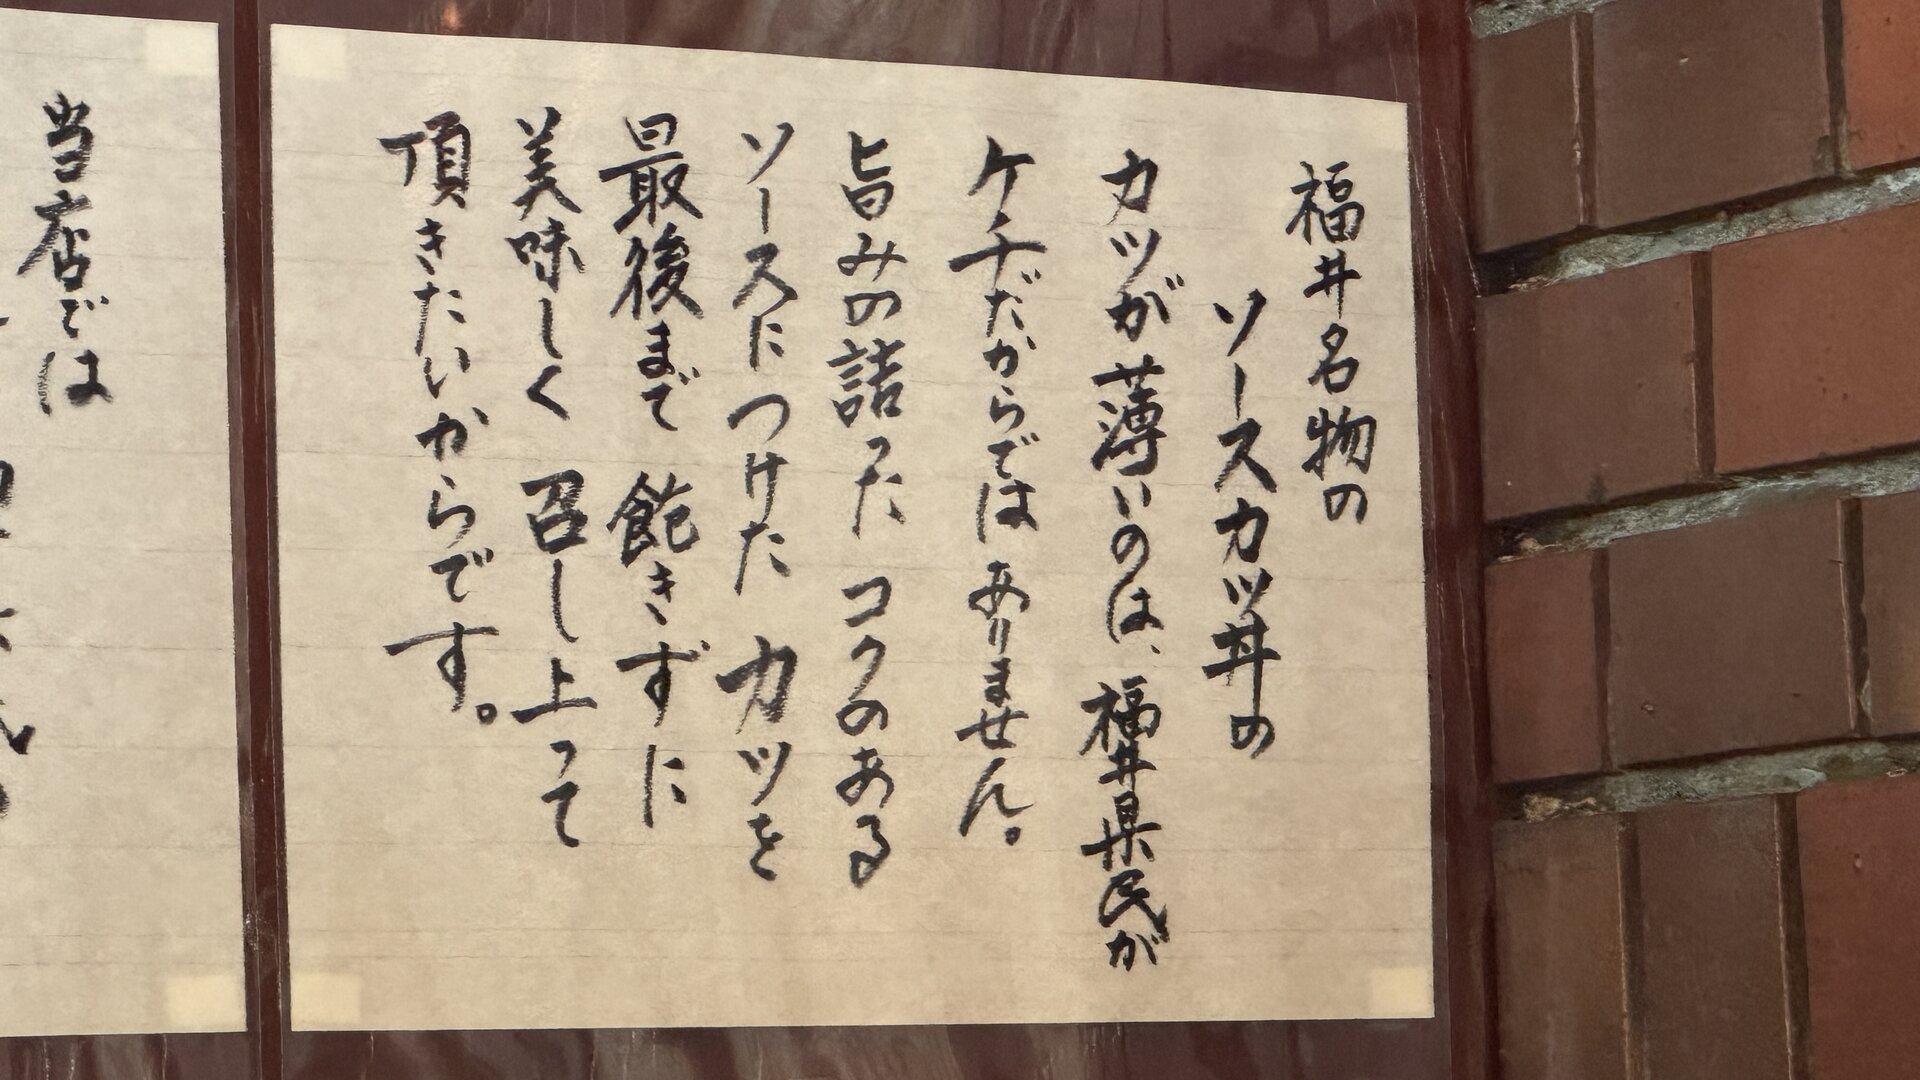 福井名物の
ソースカツ丼の
カツが薄いのは、福井県民が
ケチだからではありません。
旨みの詰った コクのある
ソースにつけた カツを
最後まで 飽きずに
美味しく 召し上って
頂きたいからです。
当店では